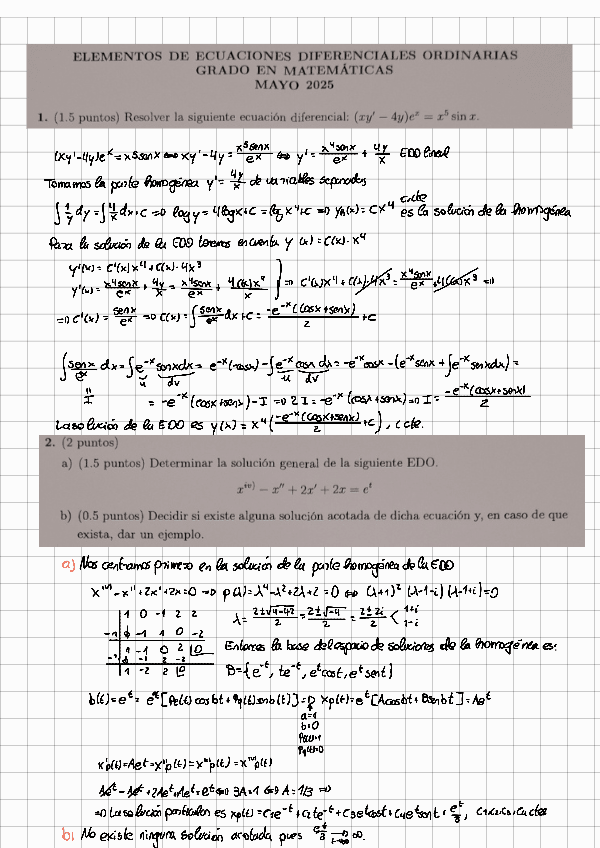 ELEMENTOS DE ECUACIONES DIFERENCIALES ORDINARIAS
GRADO EN MATEMÁTICAS
MAYO 2025
1. (1.5 puntos) Resolver la siguiente ecuación diferencial: (xy′ − 4y)eˣ = x⁵ sin x.
(xy'-4y)eˣ = x⁵ senx ⇔ xy'-4y = x⁵senx/eˣ ⇔ y' = x⁴senx/eˣ + 4y/x EDO lineal
Tomamos la parte homogénea y' = 4y/x de variables separadas
∫ 1/y dy = ∫ 4/x dx + C ⇒ log y = 4 log x + C = log x⁴ + C ⇒ yₕ(x) = Cx⁴ C cte es la solución de la homogénea
Para la solución de la EDO tenemos en cuenta y(x) = C(x)·x⁴
y'(x) = C'(x)x⁴ + C(x)·4x³
y'(x) = x⁴senx/eˣ + 4y/x = x⁴senx/eˣ + 4C(x)x⁴/x ⇒ C'(x)x⁴ + C(x)·4x³ = x⁴senx/eˣ + 4C(x)x³ ⇒
⇒ C'(x) = senx/eˣ ⇒ C(x) = ∫ senx/eˣ dx + C = -e⁻ˣ(cosx+senx)/2 + C
∫ senx/eˣ dx = ∫ e⁻ˣ senx dx = e⁻ˣ(-cosx) - ∫ e⁻ˣ cosx dx = -e⁻ˣcosx - (e⁻ˣ senx + ∫ e⁻ˣ senx dx) =
u dv u dv
I = -e⁻ˣ(cosx+senx) - I ⇒ 2I = -e⁻ˣ(cosx+senx) ⇒ I = -e⁻ˣ(cosx+senx)/2
La solución de la EDO es y(x) = x⁴(-e⁻ˣ(cosx+senx)/2 + C), C cte.
2. (2 puntos)
a) (1.5 puntos) Determinar la solución general de la siguiente EDO.
xⁱᵛ⁾ − x″ + 2x′ + 2x = eᵗ
b) (0.5 puntos) Decidir si existe alguna solución acotada de dicha ecuación y, en caso de que
exista, dar un ejemplo.
a) Nos centramos primero en la solución de la parte homogénea de la EDO
x'''' - x'' + 2x' + 2x = 0 ⇒ p(λ) = λ⁴-λ²+2λ+2 = 0 ⇔ (λ+1)² (λ-1-i)(λ-1+i) = 0
1 0 -1 2 2 λ = 2±√4-4·2/2 = 2±√-4/2 = 2±2i/2 < 1+i
-1 ↓ -1 1 0 -2 1-i
1 -1 0 2 |0 Entonces la base del espacio de soluciones de la homogénea es:
-1 ↓ -1 2 -2
1 -2 2 |0 B = {e⁻ᵗ, te⁻ᵗ, eᵗcost, eᵗsent}
b(t) = eᵗ = eᵃᵗ[Pₚ(t) cos bt + Pq(t) sen b(t)] ⇒ xp(t) = eᵗ[Acosbt + Bsenbt] = Aeᵗ
a=1
b=0
Pp(t)=1
Pq(t)=0
x'p(t) = Aeᵗ = x''p(t) = x'''p(t) = x''''p(t)
Aeᵗ - Aeᵗ + 2Aeᵗ + Aeᵗ = eᵗ ⇔ 3A = 1 ⇔ A = 1/3 ⇒
⇒ La solución particular es xp(t) = C₁e⁻ᵗ + C₂te⁻ᵗ + C₃eᵗcost + C₄eᵗsent + eᵗ/3, C₁,C₂,C₃,C₄ ctes
b) No existe ninguna solución acotada pues eᵗ/3 → ∞.
t→∞